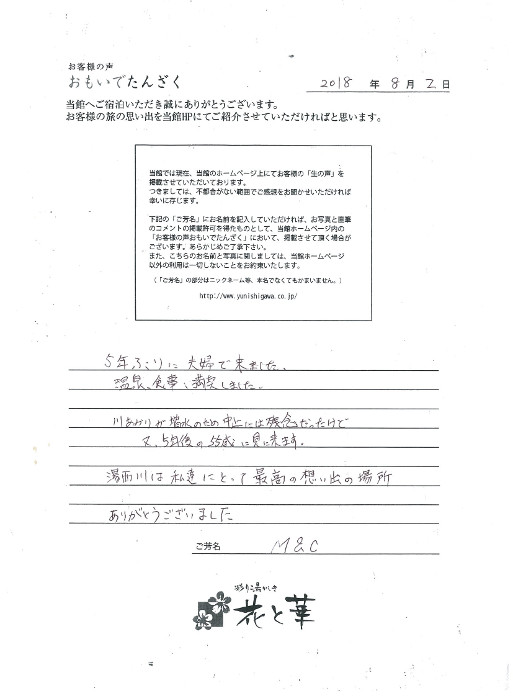 お客様の声
おもいでたんざく
2018 年 8 月 2 日
当館へご宿泊いただき誠にありがとうございます。
お客様の旅の思い出を当館HPにてご紹介させていただければと思います。
当館では現在、当館のホームページ上にてお客様の「生の声」を
掲載させていただいております。
つきましては、不都合がない範囲でご感想をお聞かせいただければ
幸いに存じます。
下記の「ご芳名」にお名前を記入していただければ、お写真と直筆
のコメントの掲載許可を得たものとして、当館ホームページ内の
「お客様の声おもいでたんざく」において、掲載させて頂く場合が
ございます。あらかじめご了承下さい。
また、こちらのお名前と写真に関しましては、当館ホームページ
以外の利用は一切しないことをお約束いたします。
（「ご芳名」の部分はニックネーム等、本名でなくてもかまいません。）
http://www.yunishigawa.co.jp/
5年ぶりに夫婦で来ました、
温泉、食事、満喫しました。
川あかりが増水のため中止には残念だったけど
又、5年後の55歳に見に来ます。
湯西川は私達にとって最高の想い出の場所
ありがとうございました
ご芳名 M&C
彩り湯かしき
花と華